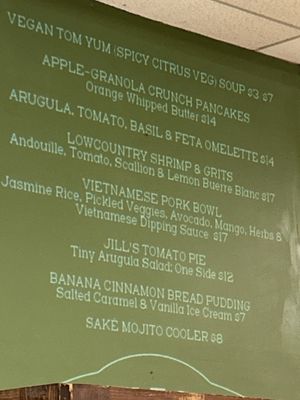 VEGAN TOM YUM (SPICY CITRUS VEG) SOUP $3 $7
APPLE-GRANOLA CRUNCH PANCAKES
Orange Whipped Butter $14
ARUGULA, TOMATO, BASIL & FETA OMELETTE $14
LOWCOUNTRY SHRIMP & GRITS
Andouille, Tomato, Scallion & Lemon Buerre Blanc $17
VIETNAMESE PORK BOWL
Jasmine Rice, Pickled Veggies, Avocado, Mango, Herbs &
Vietnamese Dipping Sauce $17
JILL'S TOMATO PIE
Tiny Arugula Salad; One Side $12
BANANA CINNAMON BREAD PUDDING
Salted Caramel & Vanilla Ice Cream $7
SAKÉ MOJITO COOLER $8